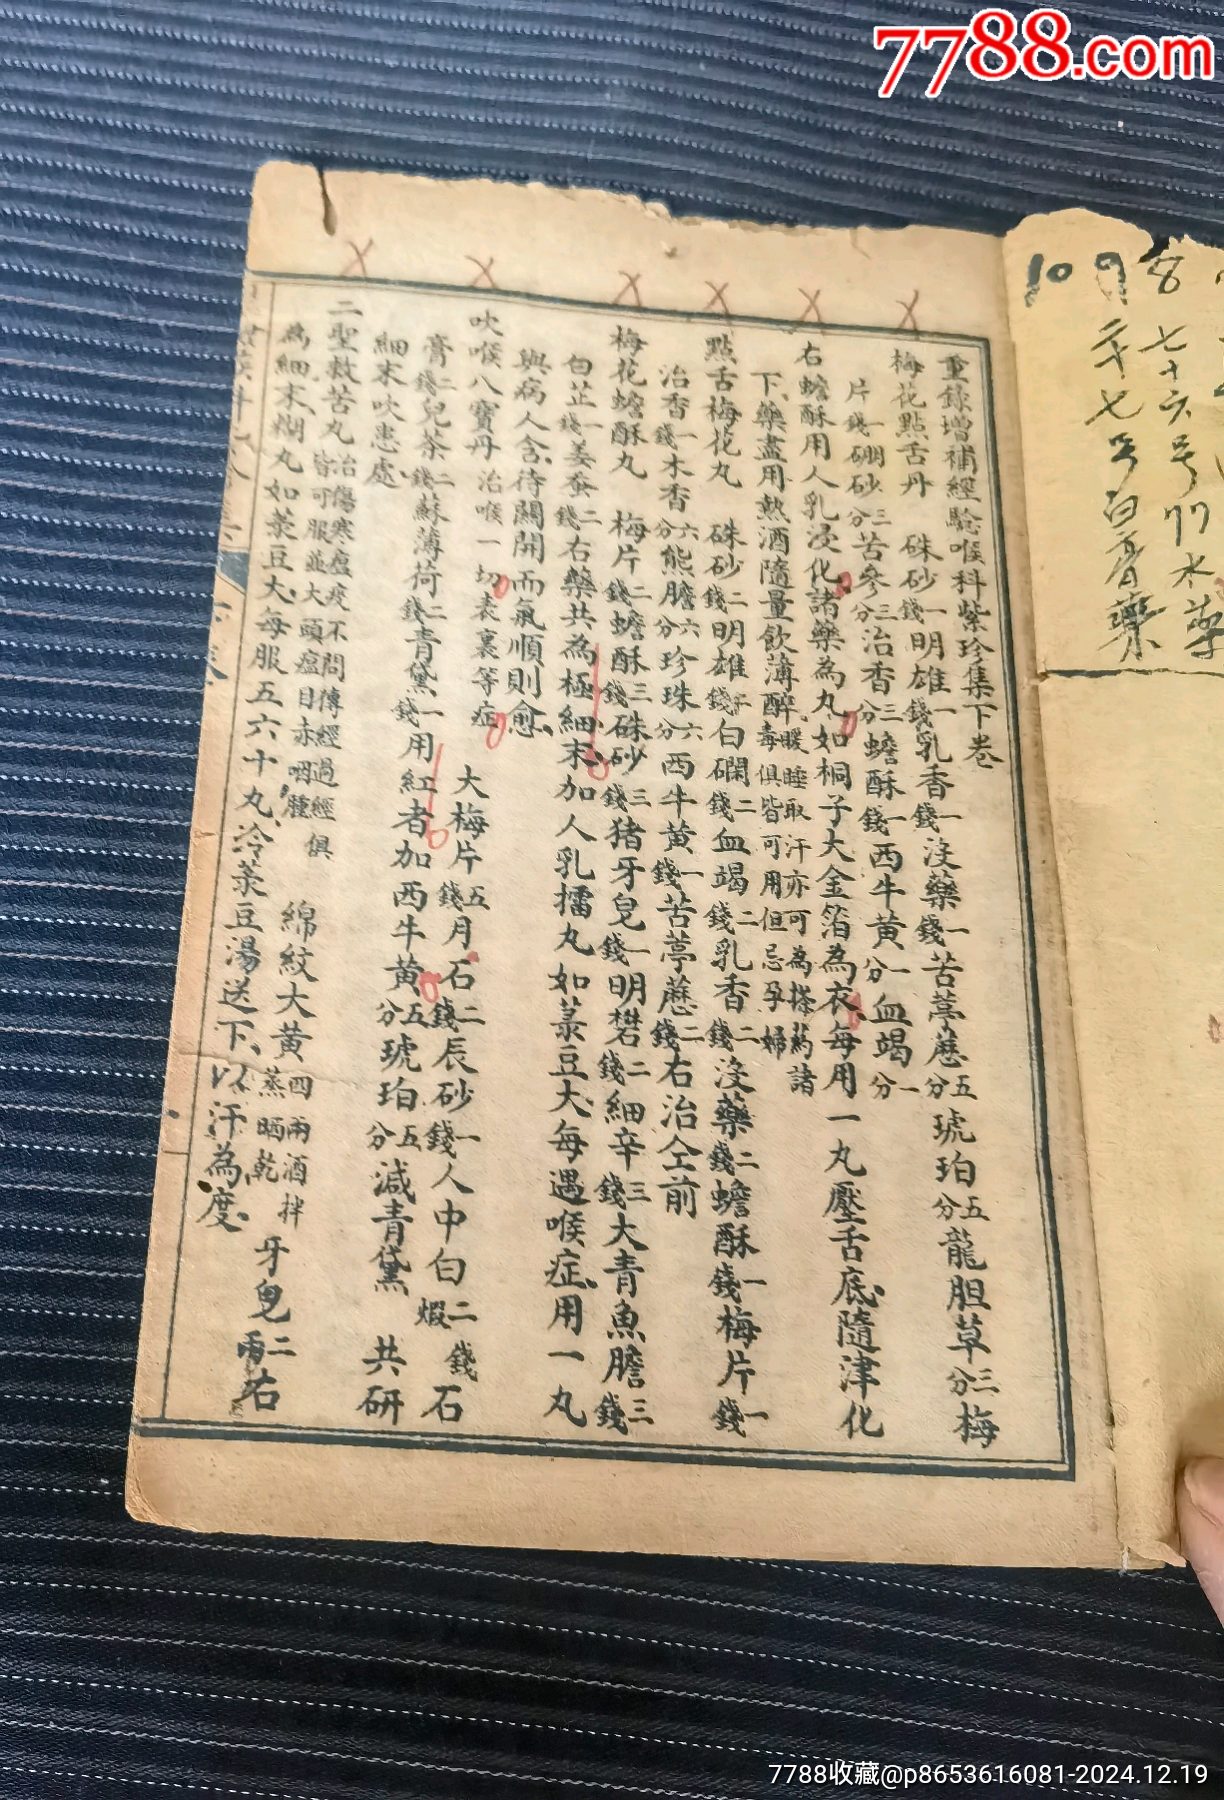 7788.com
重錄增補經驗喉科紫珍集下卷
梅花點舌丹 硃砂一錢明雄一錢乳香一錢沒藥一錢苦葶藶五分琥珀五分龍胆草三分梅
片一錢硼砂三分苦參三分治香三分蟾酥一錢西牛黃一分血竭一分
右蟾酥用人乳浸化諸藥為丸如桐子大金箔為衣每用一丸壓舌底隨津化
下藥盡用熱酒隨量飲薄醉暖睡取汗亦可為搽藥諸毒俱皆可用但忌孕婦
點舌梅花丸 硃砂二錢明雄錢白礀二錢血竭二錢乳香二錢沒藥二錢蟾酥一錢梅片一錢
治香一錢木香六分熊膽六分珍珠六分西牛黃一錢苦葶藶二錢右治仝前
梅花蟾酥丸 梅片二錢蟾酥三錢硃砂三錢猪牙皂一錢明礬二錢細辛三錢大青魚膽三錢
白芷一錢姜蚕二錢右藥共為極細末加人乳擂丸如菉豆大每遇喉症用一丸
與病人含待關開而氣順則愈
吹喉八寶丹 治喉一切表裏等症 大梅片五錢月石二錢辰砂一錢人中白二錢煆石
膏二錢兒茶二錢蘇薄荷二錢青黛一錢用紅者加西牛黃五分琥珀五分減青黛 共研
細末吹患處
二聖救苦丸 治傷寒瘟疫不問傳經過經俱皆可服並大頭瘟目赤咽腫 綿紋大黃四兩酒拌蒸晒乾 牙皂二兩右
為細末糊丸如菉豆大每服五六十丸冷菉豆湯送下以汗為度
1098
七十六号竹木藥
二十七号白膏藥
7788收藏@p8653616081-2024.12.19